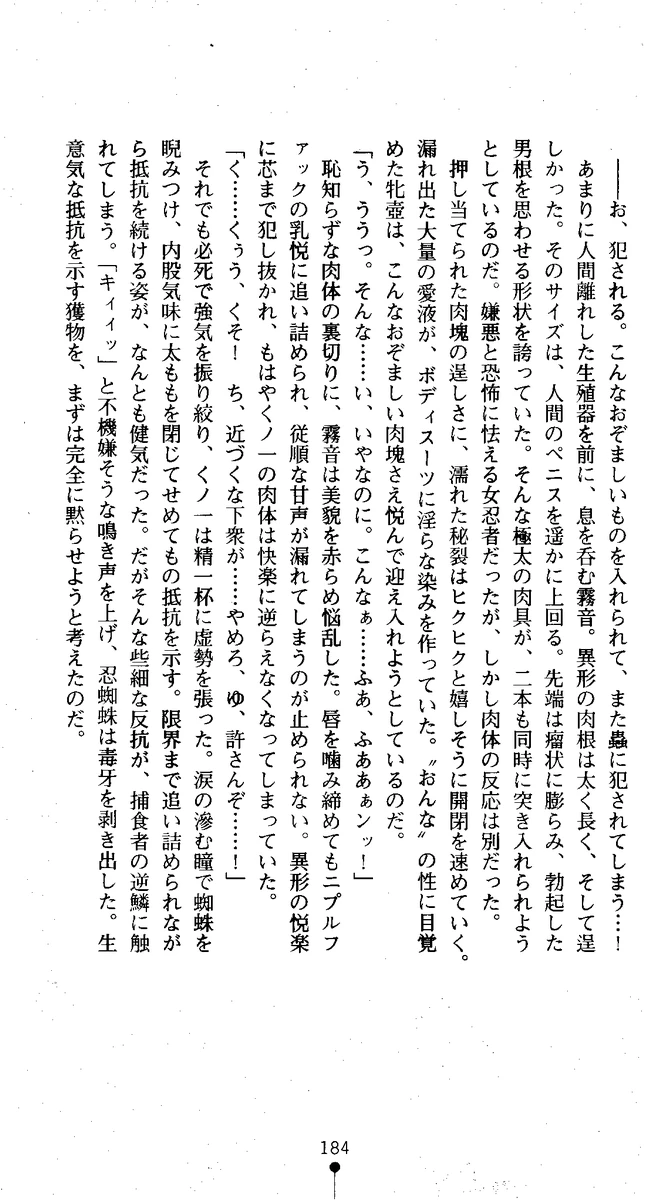 ――お、犯される。こんなおぞましいものを入れられて、また蟲に犯されてしまう…！
あまりに人間離れした生殖器を前に、息を呑む霧音。異形の肉根は太く長く、そして逞
しかった。そのサイズは、人間のペニスを遥かに上回る。先端は瘤状に膨らみ、勃起した
男根を思わせる形状を誇っていた。そんな極太の肉具が、二本も同時に突き入れられよう
としているのだ。嫌悪と恐怖に怯える女忍者だったが、しかし肉体の反応は別だった。
押し当てられた肉塊の逞しさに、濡れた秘裂はヒクヒクと嬉しそうに開閉を速めていく。
漏れ出た大量の愛液が、ボディスーツに淫らな染みを作っていた。〝おんな〟の性に目覚
めた牝壺は、こんなおぞましい肉塊さえ悦んで迎え入れようとしているのだ。
「う、ううっ。そんな……い、いやなのに。こんなぁ……ふあ、ふああぁンッ！」
恥知らずな肉体の裏切りに、霧音は美貌を赤らめ悩乱した。唇を噛み締めてもニプルフ
ァックの乳悦に追い詰められ、従順な甘声が漏れてしまうのが止められない。異形の悦楽
に芯まで犯し抜かれ、もはやくノ一の肉体は快楽に逆らえなくなってしまっていた。
「く……くぅう、くそ！　ち、近づくな下衆が……やめろ、ゆ、許さんぞ……！」
それでも必死で強気を振り絞り、くノ一は精一杯に虚勢を張った。涙の滲む瞳で蜘蛛を
睨みつけ、内股気味に太ももを閉じてせめてもの抵抗を示す。限界まで追い詰められなが
ら抵抗を続ける姿が、なんとも健気だった。だがそんな些細な反抗が、捕食者の逆鱗に触
れてしまう。「キィィッ」と不機嫌そうな鳴き声を上げ、忍蜘蛛は毒牙を剥き出した。生
意気な抵抗を示す獲物を、まずは完全に黙らせようと考えたのだ。
184